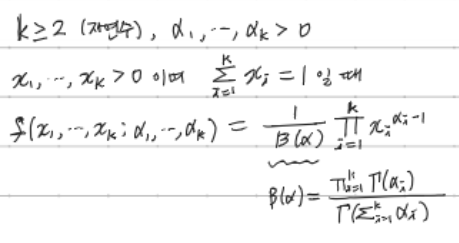 k≥2 (자연수), α₁, ⋯, αₖ > 0
x₁, ⋯, xₖ > 0 이며 ∑ᵢ₌₁ᵏ xᵢ = 1 일 때
f(x₁, ⋯, xₖ; α₁, ⋯, αₖ) = 1/B(α) ∏ᵢ₌₁ᵏ xᵢ^(αᵢ-1)
B(α) = ∏ᵢ₌₁ᵏ Γ(αᵢ) / Γ(∑ᵢ₌₁ᵏ αᵢ)